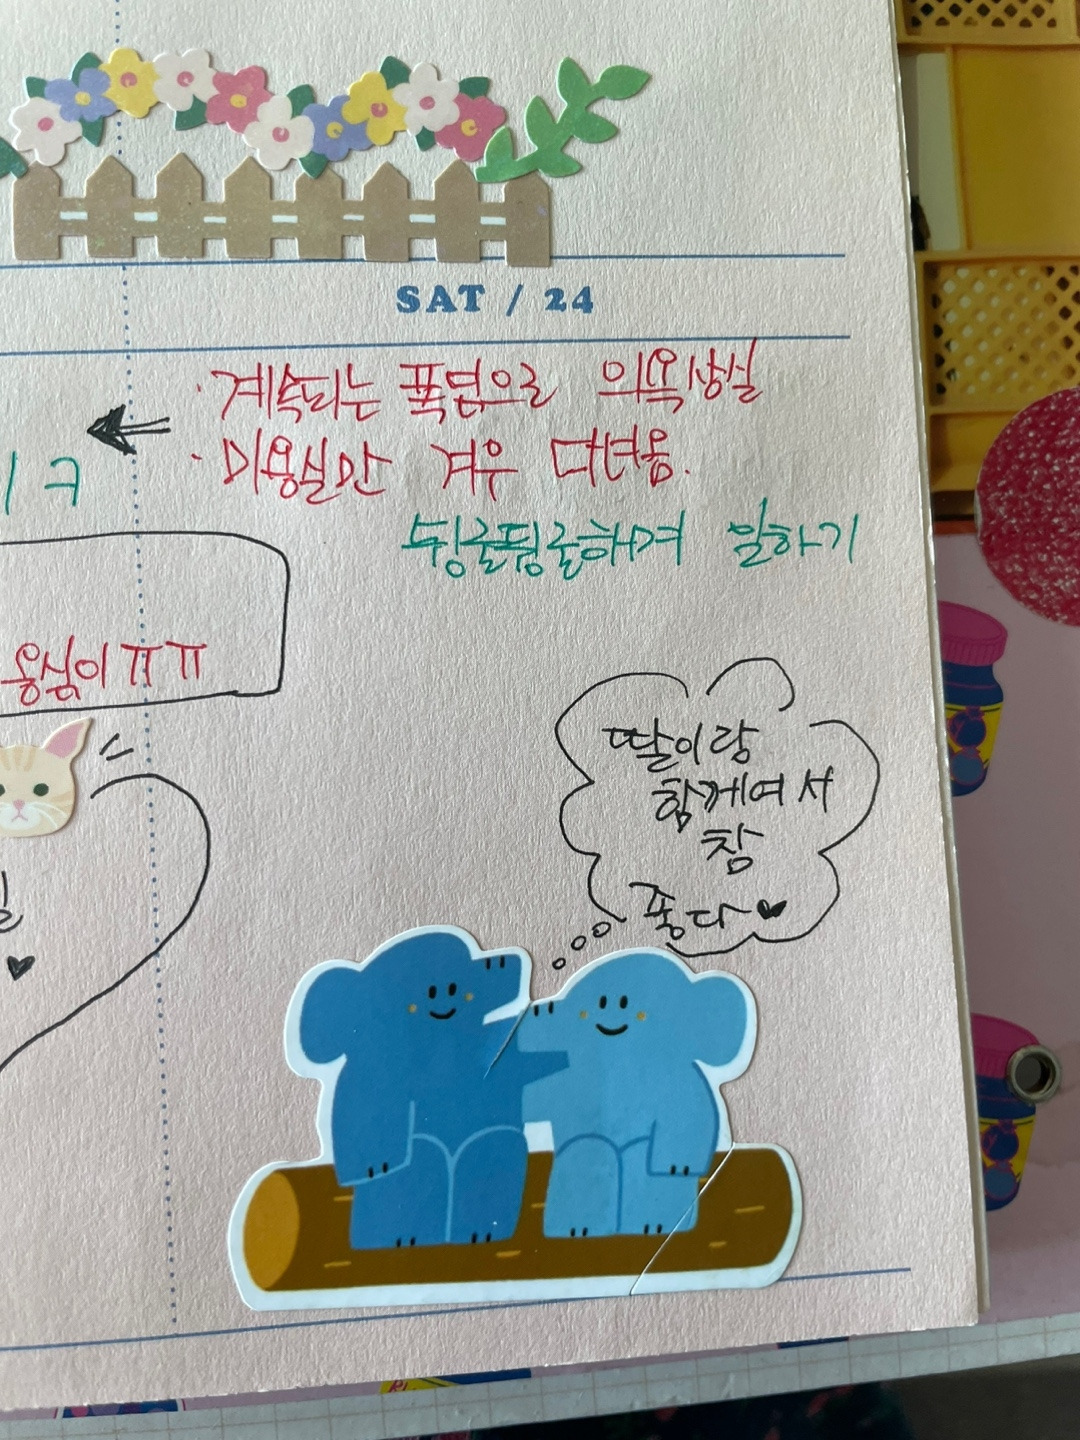 SAT / 24
· 계속되는 폭염으로 의욕상실
· 미용실만 겨우 다녀옴.
뒹굴뒹굴하며 말하기
ㅣㅋ
옹심이 ㅠㅠ
딸이랑
함께여서
참
좋다♥